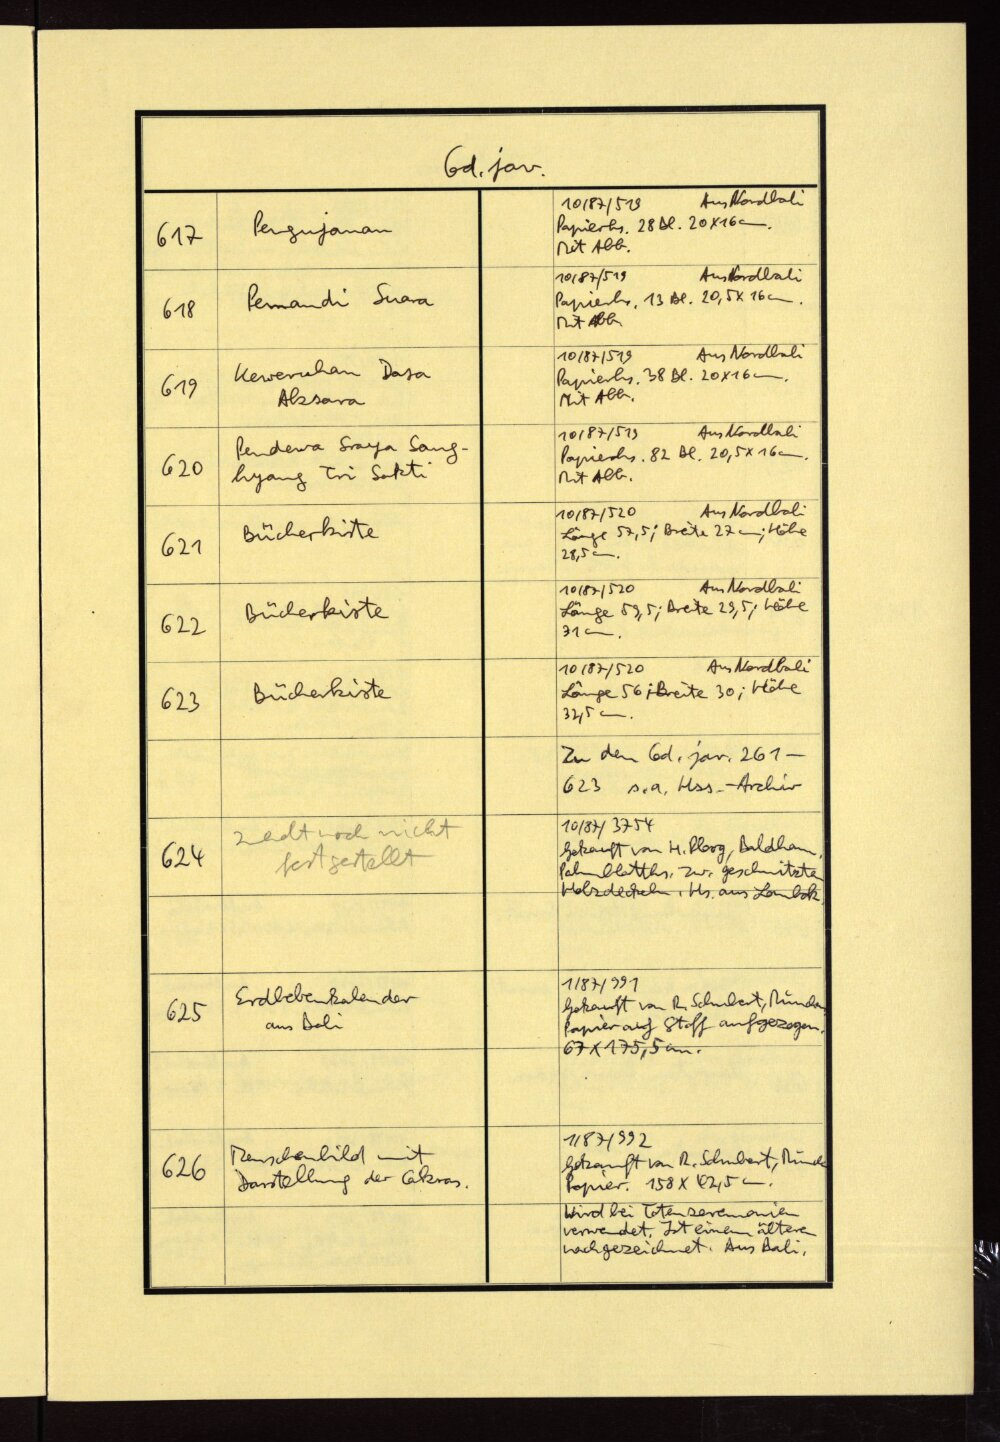 Cod. jav.
617
Pengujanan
10/87/519 Aus Nordbali
Papierhs. 28 Bl. 20 x 16 cm.
Mit Abb.
618
Pemandi Suara
10/87/519 Aus Nordbali
Papierhs. 13 Bl. 20,5 x 16 cm.
Mit Abb.
619
Keweruhan Dasa
Aksara
10/87/519 Aus Nordbali
Papierhs. 38 Bl. 20 x 16 cm.
Mit Abb.
620
Pendewa Sraya Sang-
hyang Tri Sakti
10/87/519 Aus Nordbali
Papierhs. 82 Bl. 20,5 x 16 cm.
Mit Abb.
621
Bücherkiste
10/87/520 Aus Nordbali
Länge 57,5; Breite 27 cm; Höhe
28,5 cm.
622
Bücherkiste
10/87/520 Aus Nordbali
Länge 59,5; Breite 29,5; Höhe
31 cm.
623
Bücherkiste
10/87/520 Aus Nordbali
Länge 56; Breite 30; Höhe
32,5 cm.
Zu den Cod. jav. 261–
623 s. a. Hss.-Archiv
624
noch nicht
festgestellt
10/87/3754
Gekauft von H. Ploog, Baldham.
Palmblatths. zw. geschnitzten
Holzdeckeln. Hs. aus Lombok.
625
Erdbebenkalender
aus Bali
1/87/991
Gekauft von R. Schubert,
Papier auf Stoff aufgezogen.
67 x 175,5 cm.
626
Menschenbild mit
Darstellung der Cakras.
1/87/992
Gekauft von R. Schubert,
Papier. 158 x 42,5 cm.
Wird bei Totenzeremonien
verwendet. Ist einem älteren
nachgezeichnet. Aus Bali.